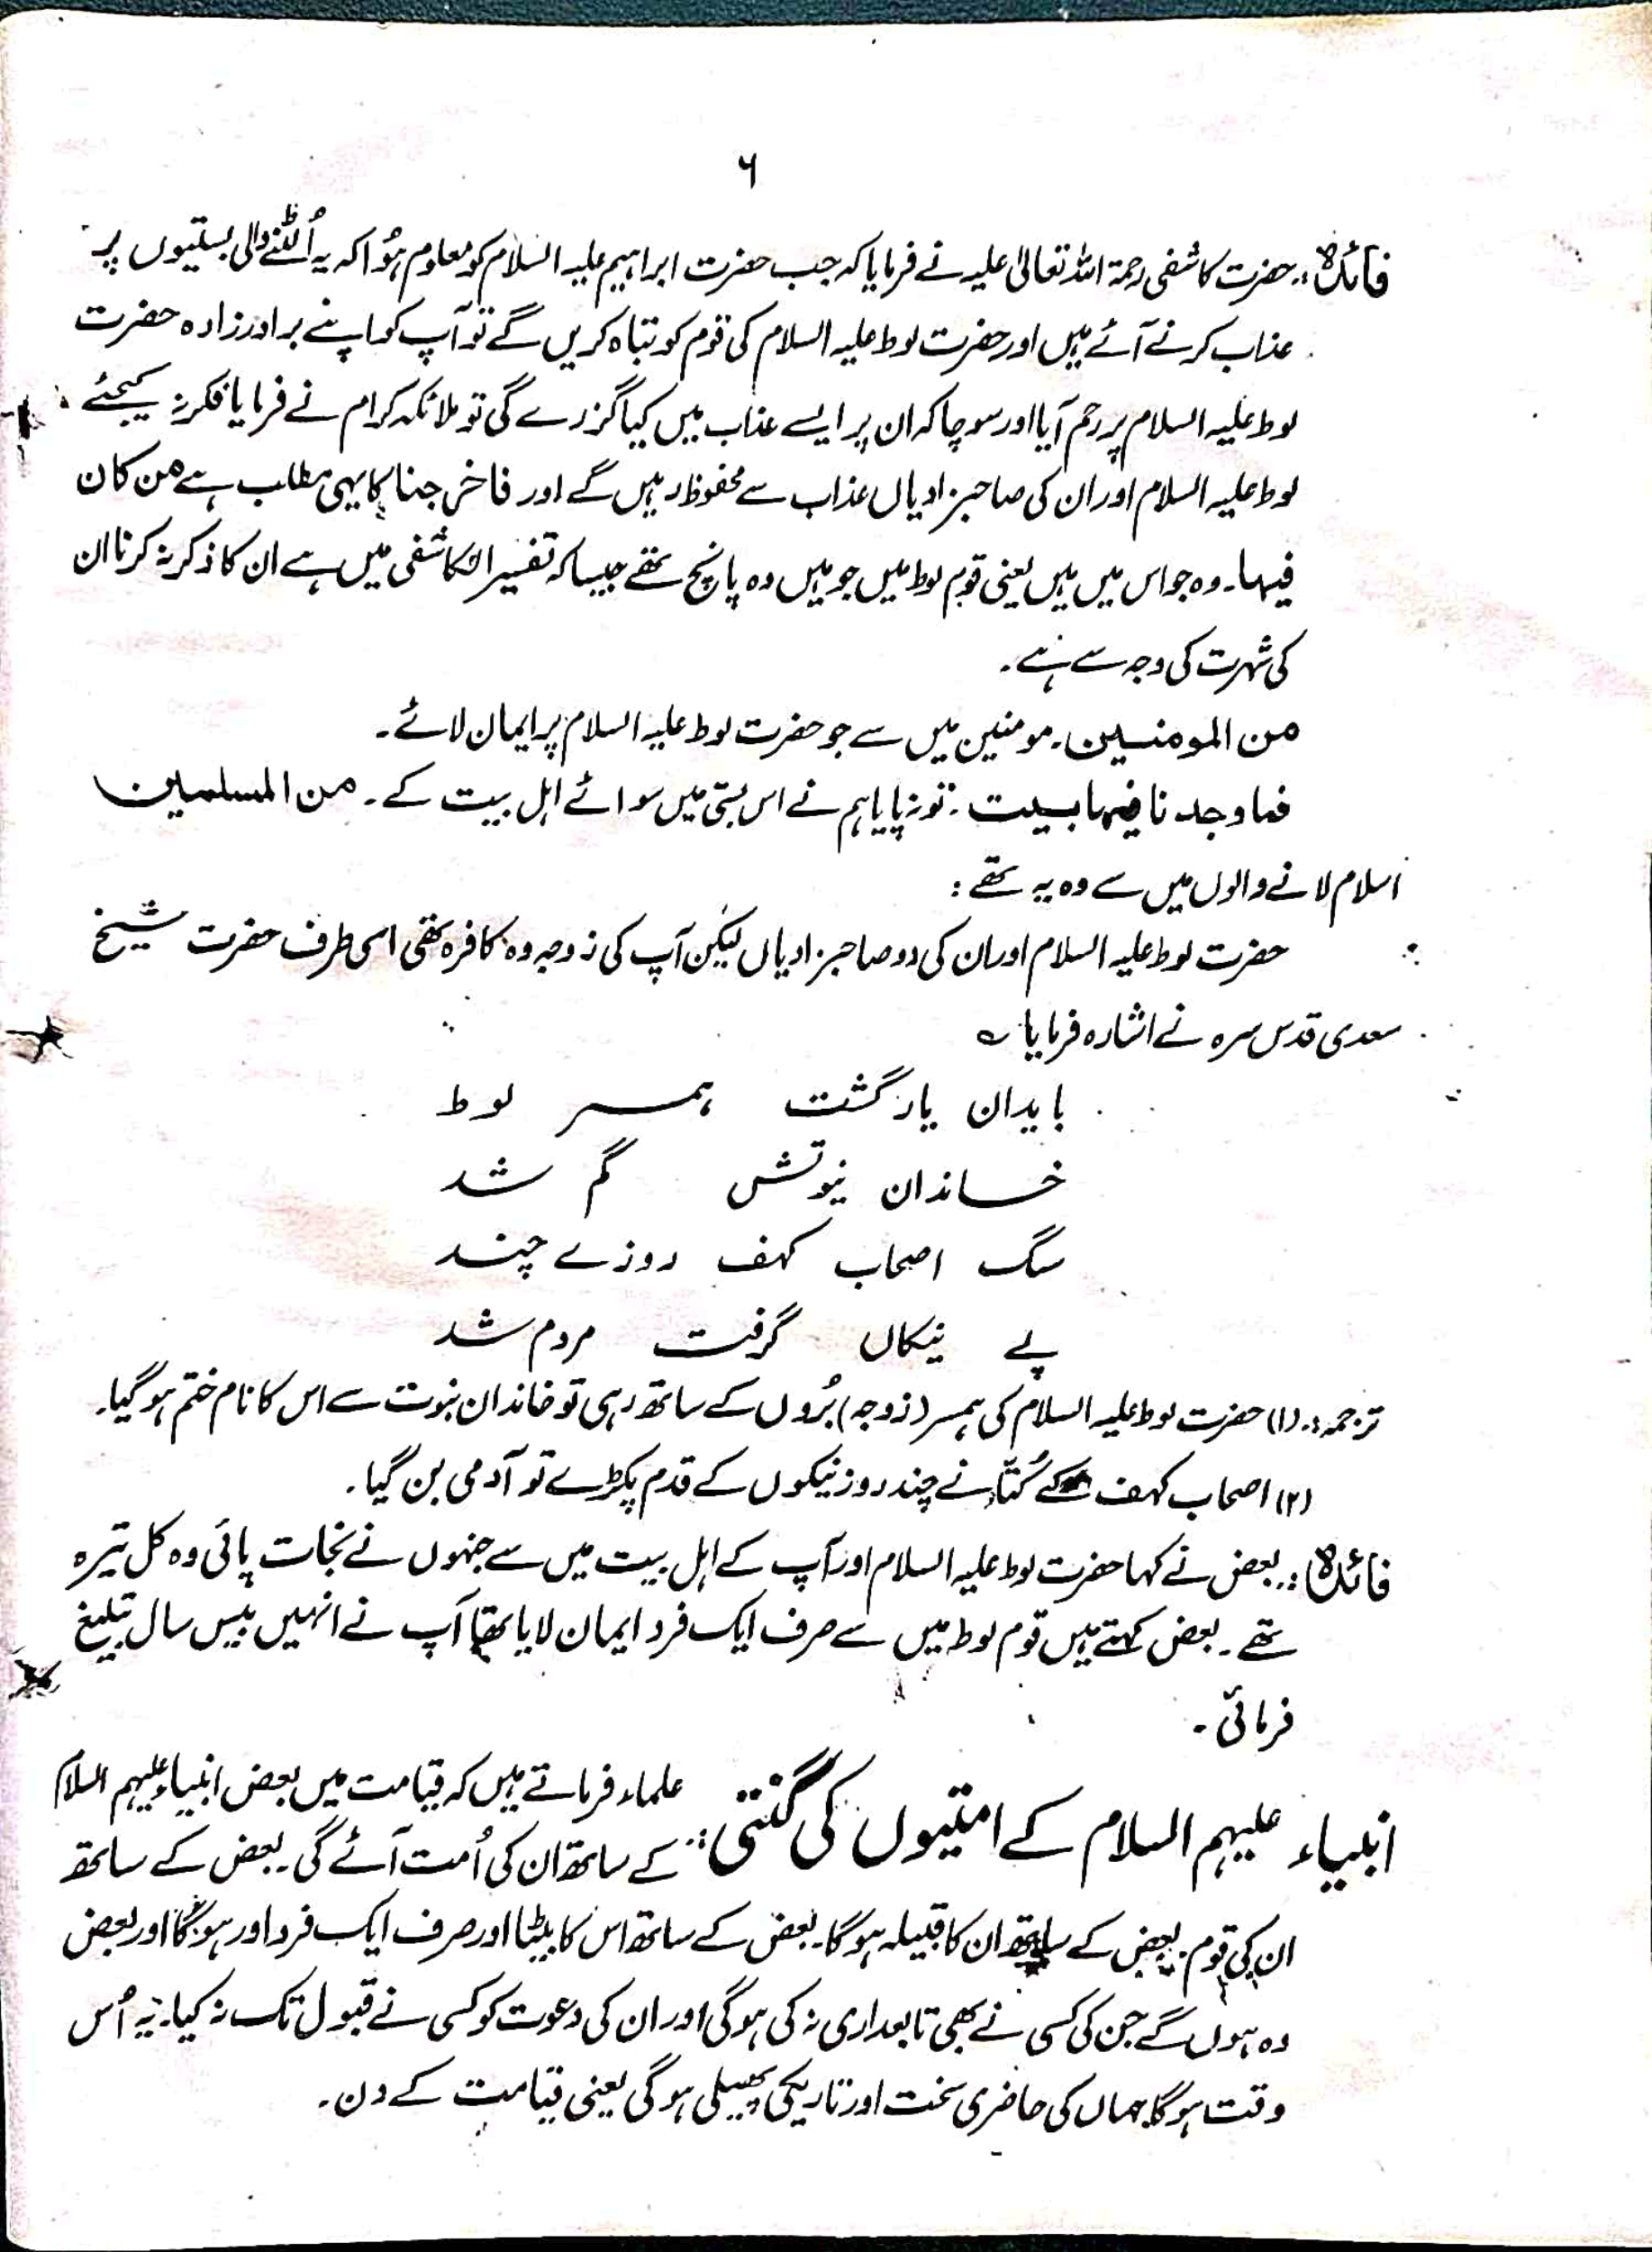 ۶
فائدہ: حضرت کاشفی رحمۃ اللہ تعالیٰ علیہ نے فرمایا کہ جب حضرت ابراہیم علیہ السلام کو معلوم ہُوا کہ یہ اُلٹنے والی بستیوں پر
عذاب کرنے آئے ہیں اور حضرت لوط علیہ السلام کی قوم کو تباہ کریں گے تو آپ کو اپنے برادر زادہ حضرت
لوط علیہ السلام پر رحم آیا اور سوچا کہ ان پر ایسے عذاب میں کیا گزرے گی تو ملائکہ کرام نے فرمایا فکر نہ کیجئے
لوط علیہ السلام اور ان کی صاحبزادیاں عذاب سے محفوظ رہیں گے اور فاخرجنا کا یہی مطلب ہے من کان
فیہا۔ وہ جو اس میں ہیں یعنی قوم لوط میں جو ہیں وہ پانچ تھے جیسا کہ تفسیر الکاشفی میں ہے ان کا ذکر نہ کرنا ان
کی شہرت کی وجہ سے ہے۔
من المومنین۔ مومنین میں سے جو حضرت لوط علیہ السلام پر ایمان لائے۔
فما وجدنا فیہا بیت: تو نہ پایا ہم نے اس بستی میں سوائے اہل بیت کے۔ من المسلمین
اسلام لانے والوں میں سے وہ یہ تھے:
حضرت لوط علیہ السلام اور ان کی دو صاحبزادیاں لیکن آپ کی زوجہ وہ کافرہ تھی اسی طرف حضرت شیخ
سعدی قدس سرہ نے اشارہ فرمایا ؎
بابدان یار گشت ہمسر لوط
خاندان نبوتش گم شد
سگ اصحاب کہف روزے چند
پے نیکاں گرفت مردم شد
ترجمہ: (۱) حضرت لوط علیہ السلام کی ہمسر (زوجہ) بُروں کے ساتھ رہی تو خاندان نبوت سے اس کا نام ختم ہو گیا۔
(۲) اصحاب کہف کے کُتّا نے چند روز نیکوں کے قدم پکڑے تو آدمی بن گیا۔
فائدہ: بعض نے کہا حضرت لوط علیہ السلام اور آپ کے اہل بیت میں سے جنہوں نے نجات پائی وہ کل تیرہ
تھے۔ بعض کہتے ہیں قوم لوط میں سے صرف ایک فرد ایمان لایا تھا آپ نے انہیں بیس سال تبلیغ
فرمائی۔
انبیاء علیہم السلام کے امتیوں کی گنتی: علماء فرماتے ہیں کہ قیامت میں بعض انبیاء علیہم السلام
کے ساتھ ان کی اُمت آئے گی۔ بعض کے ساتھ
ان کی قوم۔ بعض کے ساتھ ان کا قبیلہ ہوگا۔ بعض کے ساتھ اس کا بیٹا اور صرف ایک فرد اور ہوگا اور بعض
وہ ہوں گے جن کی کسی نے بھی تابعداری نہ کی ہوگی اور ان کی دعوت کو کسی نے قبول تک نہ کیا۔ یہ اُس
وقت ہوگا جہاں کی حاضری سخت اور تاریکی پھیلی ہوگی یعنی قیامت کے دن۔